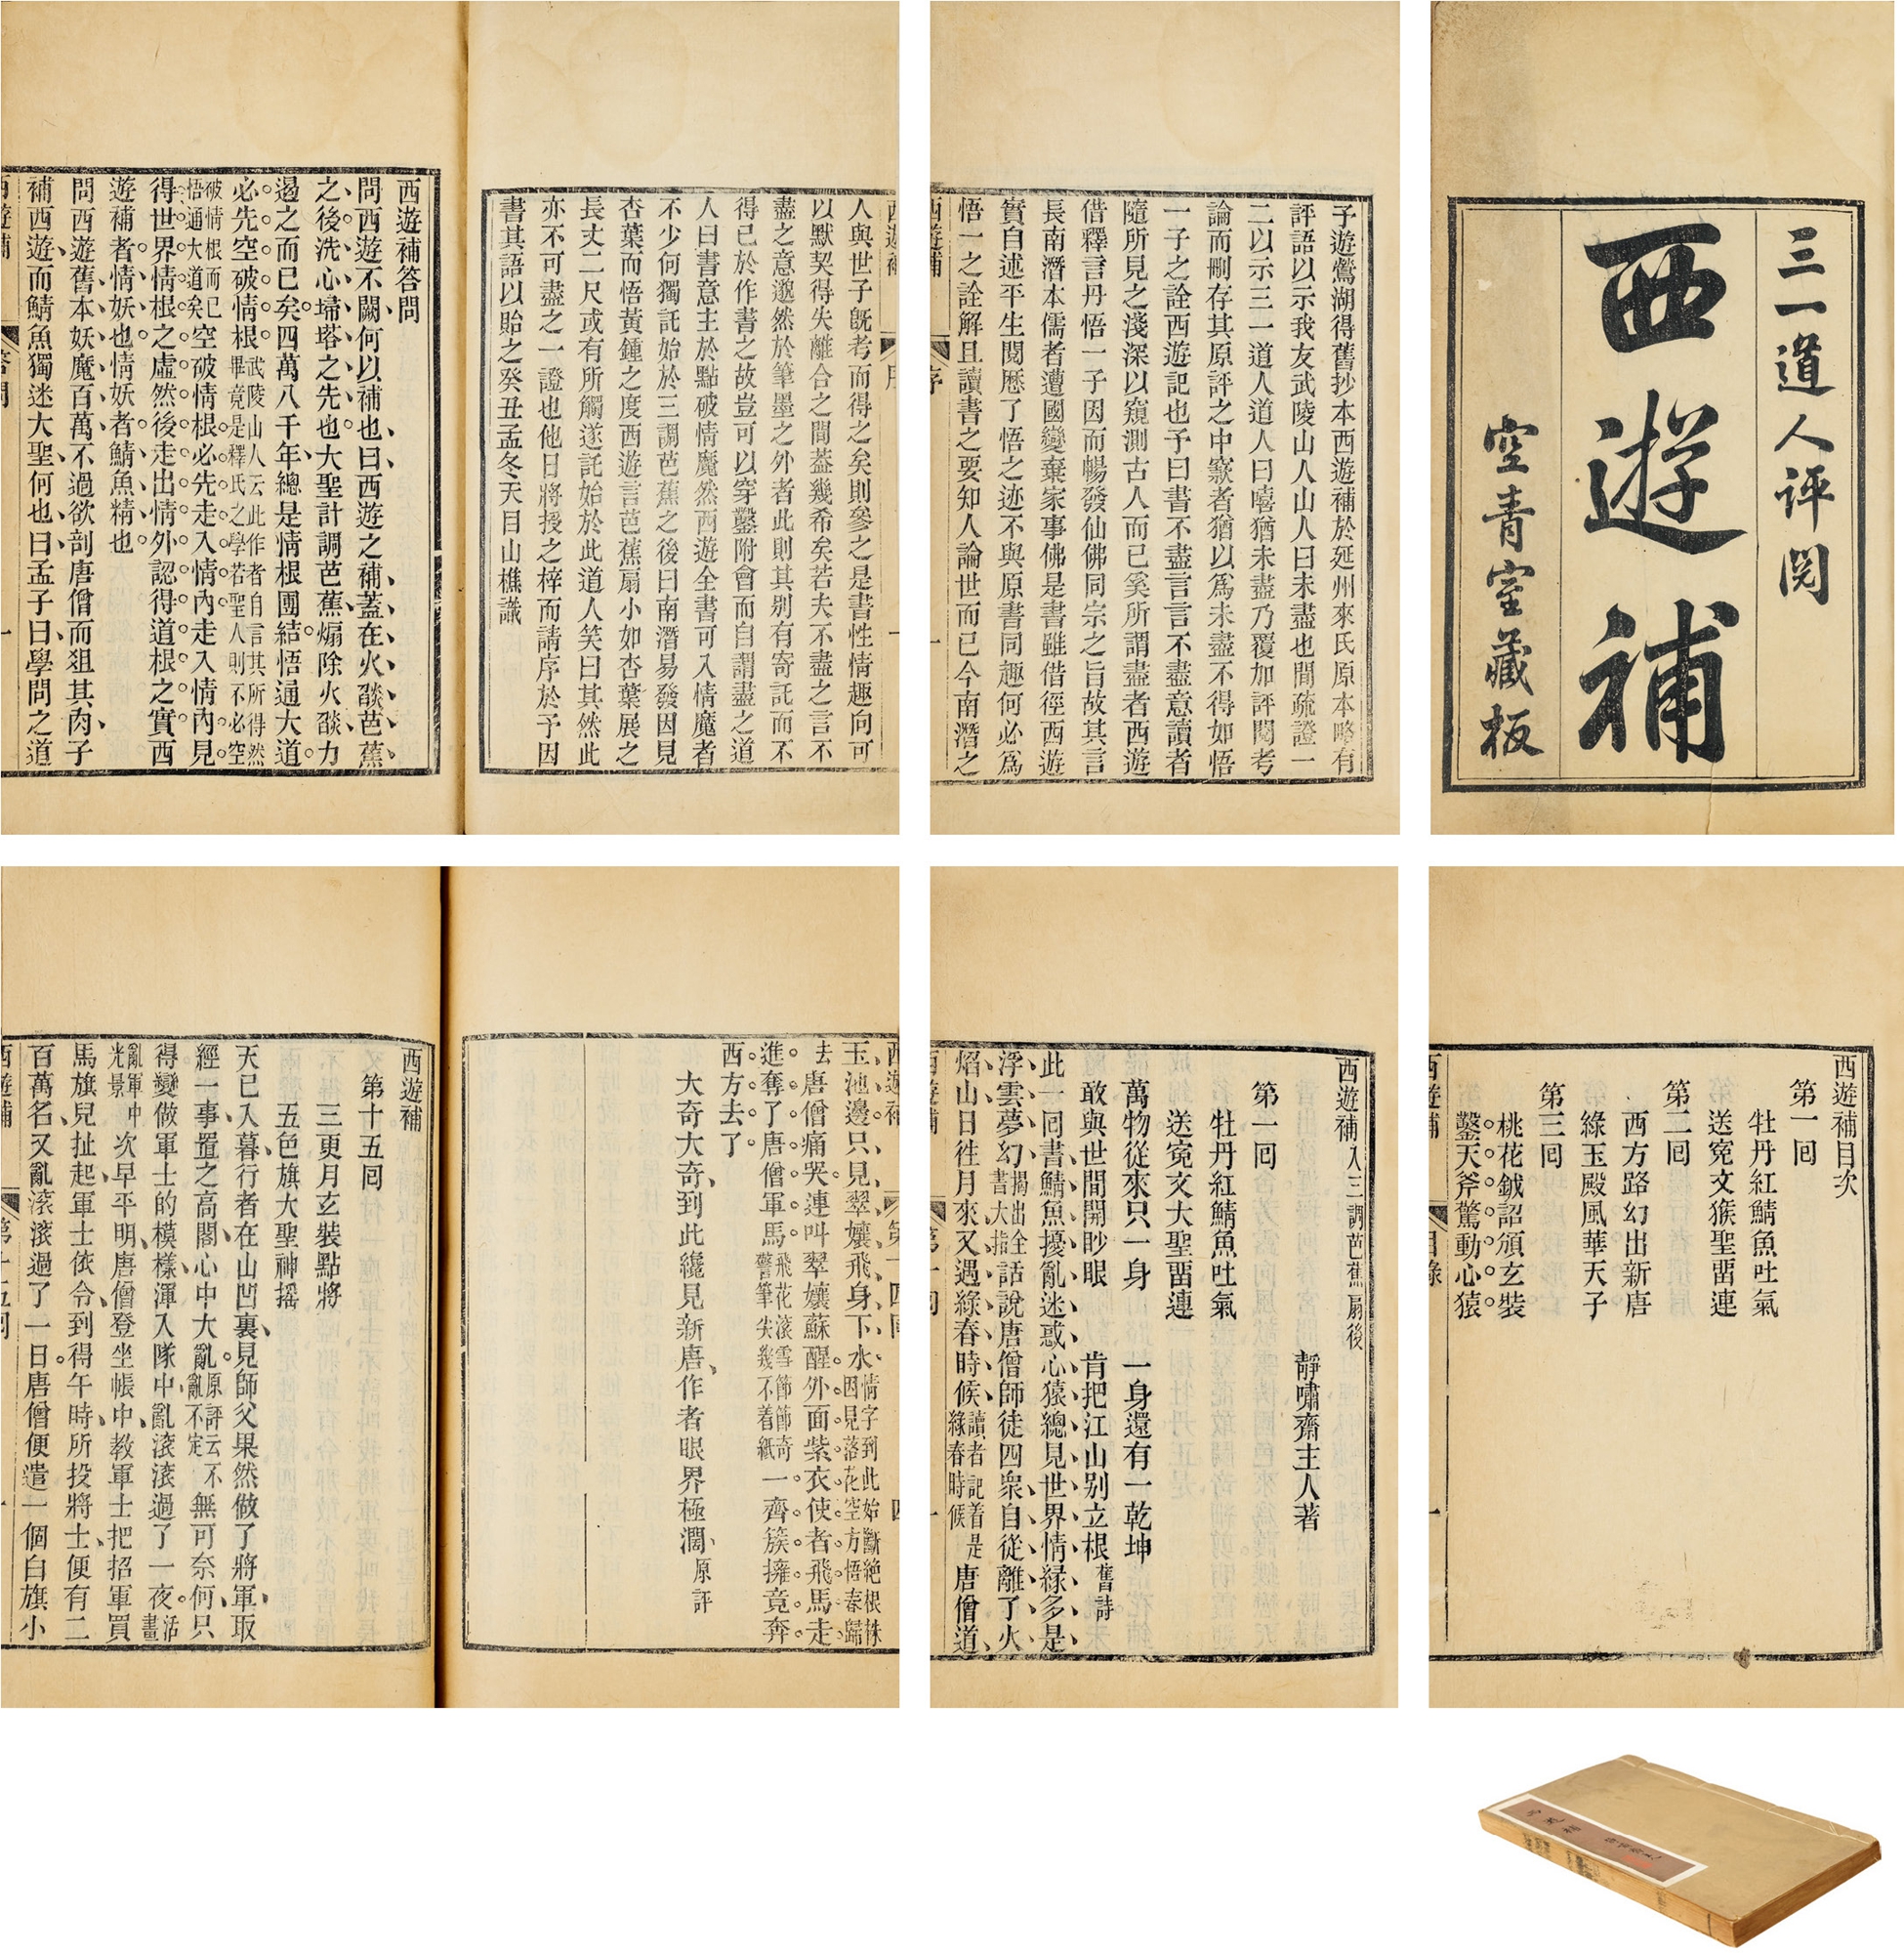 三一道人評閱
西遊補
空青室藏板
子遊鶯湖得舊抄本西遊補於延州來氏原本略有
評語以示我友武陵山人山人曰未盡也間疏證一
二以示三一道人道人曰嘻猶未盡乃覆加評閱考
論而刪存其原評之中窾者猶以爲未盡不得如悟
一子之詮西遊記也予曰書不盡言言不盡意讀者
隨所見之淺深以窺測古人而已奚所謂盡者西遊
借釋言丹悟一子因而暢發仙佛同宗之旨故其言
長南潛本儒者遭國變棄家事佛是書雖借徑西遊
實自述平生閱歷了悟之迹不與原書同趣何必爲
悟一之詮解且讀書之要知人論世而已今南潛之
西遊補 序 一
人與世子既考而得之矣則參之是書性情趣向可
以默契得失離合之間葢幾希矣若夫不盡之言不
盡之意邈然於筆墨之外者此則其别有寄託而不
得已於作書之故豈可以穿鑿附會而自謂盡之道
人曰書意主於點破情魔然西遊全書可入情魔者
不少何獨託始於三調芭蕉之後曰南潛易發因見
杏葉而悟黃鍾之度西遊言芭蕉扇小如杏葉展之
長丈二尺或有所觸遂託始於此道人笑曰其然此
亦不可盡之一證也他日將授之梓而請序於予因
書其語以貽之癸丑孟冬天目山樵識
西遊補答問
問西遊不闕何以補也曰西遊之補蓋在火燄芭蕉
之後洗心埽塔之先也大聖計調芭蕉煽除火燄力
遏之而已矣四萬八千年總是情根團結悟通大道
必先空破情根武陵山人云此作者自言其所得然畢竟是釋氏之學若聖人則不必空
破情根而已悟通大道矣空破情根必先走入情內走入情內見
得世界情根之虛然後走出情外認得道根之實西
遊補者情妖也情妖者鯖魚精也
問西遊舊本妖魔百萬不過欲剖唐僧而俎其肉子
補西遊而鯖魚獨迷大聖何也曰孟子曰學問之道
西遊補 答問 一
西遊補目次
第一囘
牡丹紅鯖魚吐氣
送寃文猴聖畱連
第二囘
西方路幻出新唐
綠玉殿風華天子
第三囘
桃花鉞詔頒玄裝
鑿天斧驚動心猿
西遊補 目錄 一
西遊補入三調芭蕉扇後
靜嘯齋主人著
第一囘
牡丹紅鯖魚吐氣
送寃文大聖畱連
萬物從來只一身 一身還有一乾坤
敢與世間開眇眼 肯把江山别立根舊詩
此一囘書鯖魚擾亂迷惑心猿總見世界情緣多是
浮雲夢幻揭出全書大指話說唐僧師徒四衆自從離了火
燄山日徃月來又遇綠春時候讀者記着是綠春時候唐僧道
西遊補 第一囘 一
玉池邊只見翠孃飛身下水情字到此始斷絕根株因見落花空方悟春歸
去唐僧痛哭連叫翠孃蘇醒外面紫衣使者飛馬走
進奪了唐僧軍馬飛花滾雪節節奇警筆尖幾不着紙一齊簇擁竟奔
西方去了
大奇大奇到此纔見新唐作者眼界極濶原評
西遊補
第十五囘
三更月玄裝點將
五色旗大聖神摇
天已入暮行者在山凹裏見師父果然做了將軍取
經一事置之高閣心中大亂原評云不亂不定無可奈何只
得變做軍士的模樣渾入隊中亂滾滾過了一夜活畫
亂軍中光景次早平明唐僧登坐帳中教軍士把招軍買
馬旗兒扯起軍士依令到得午時所投將士便有二
百萬名又亂滾滾過了一日唐僧便遣一個白旗小
西遊補 第十五囘 一